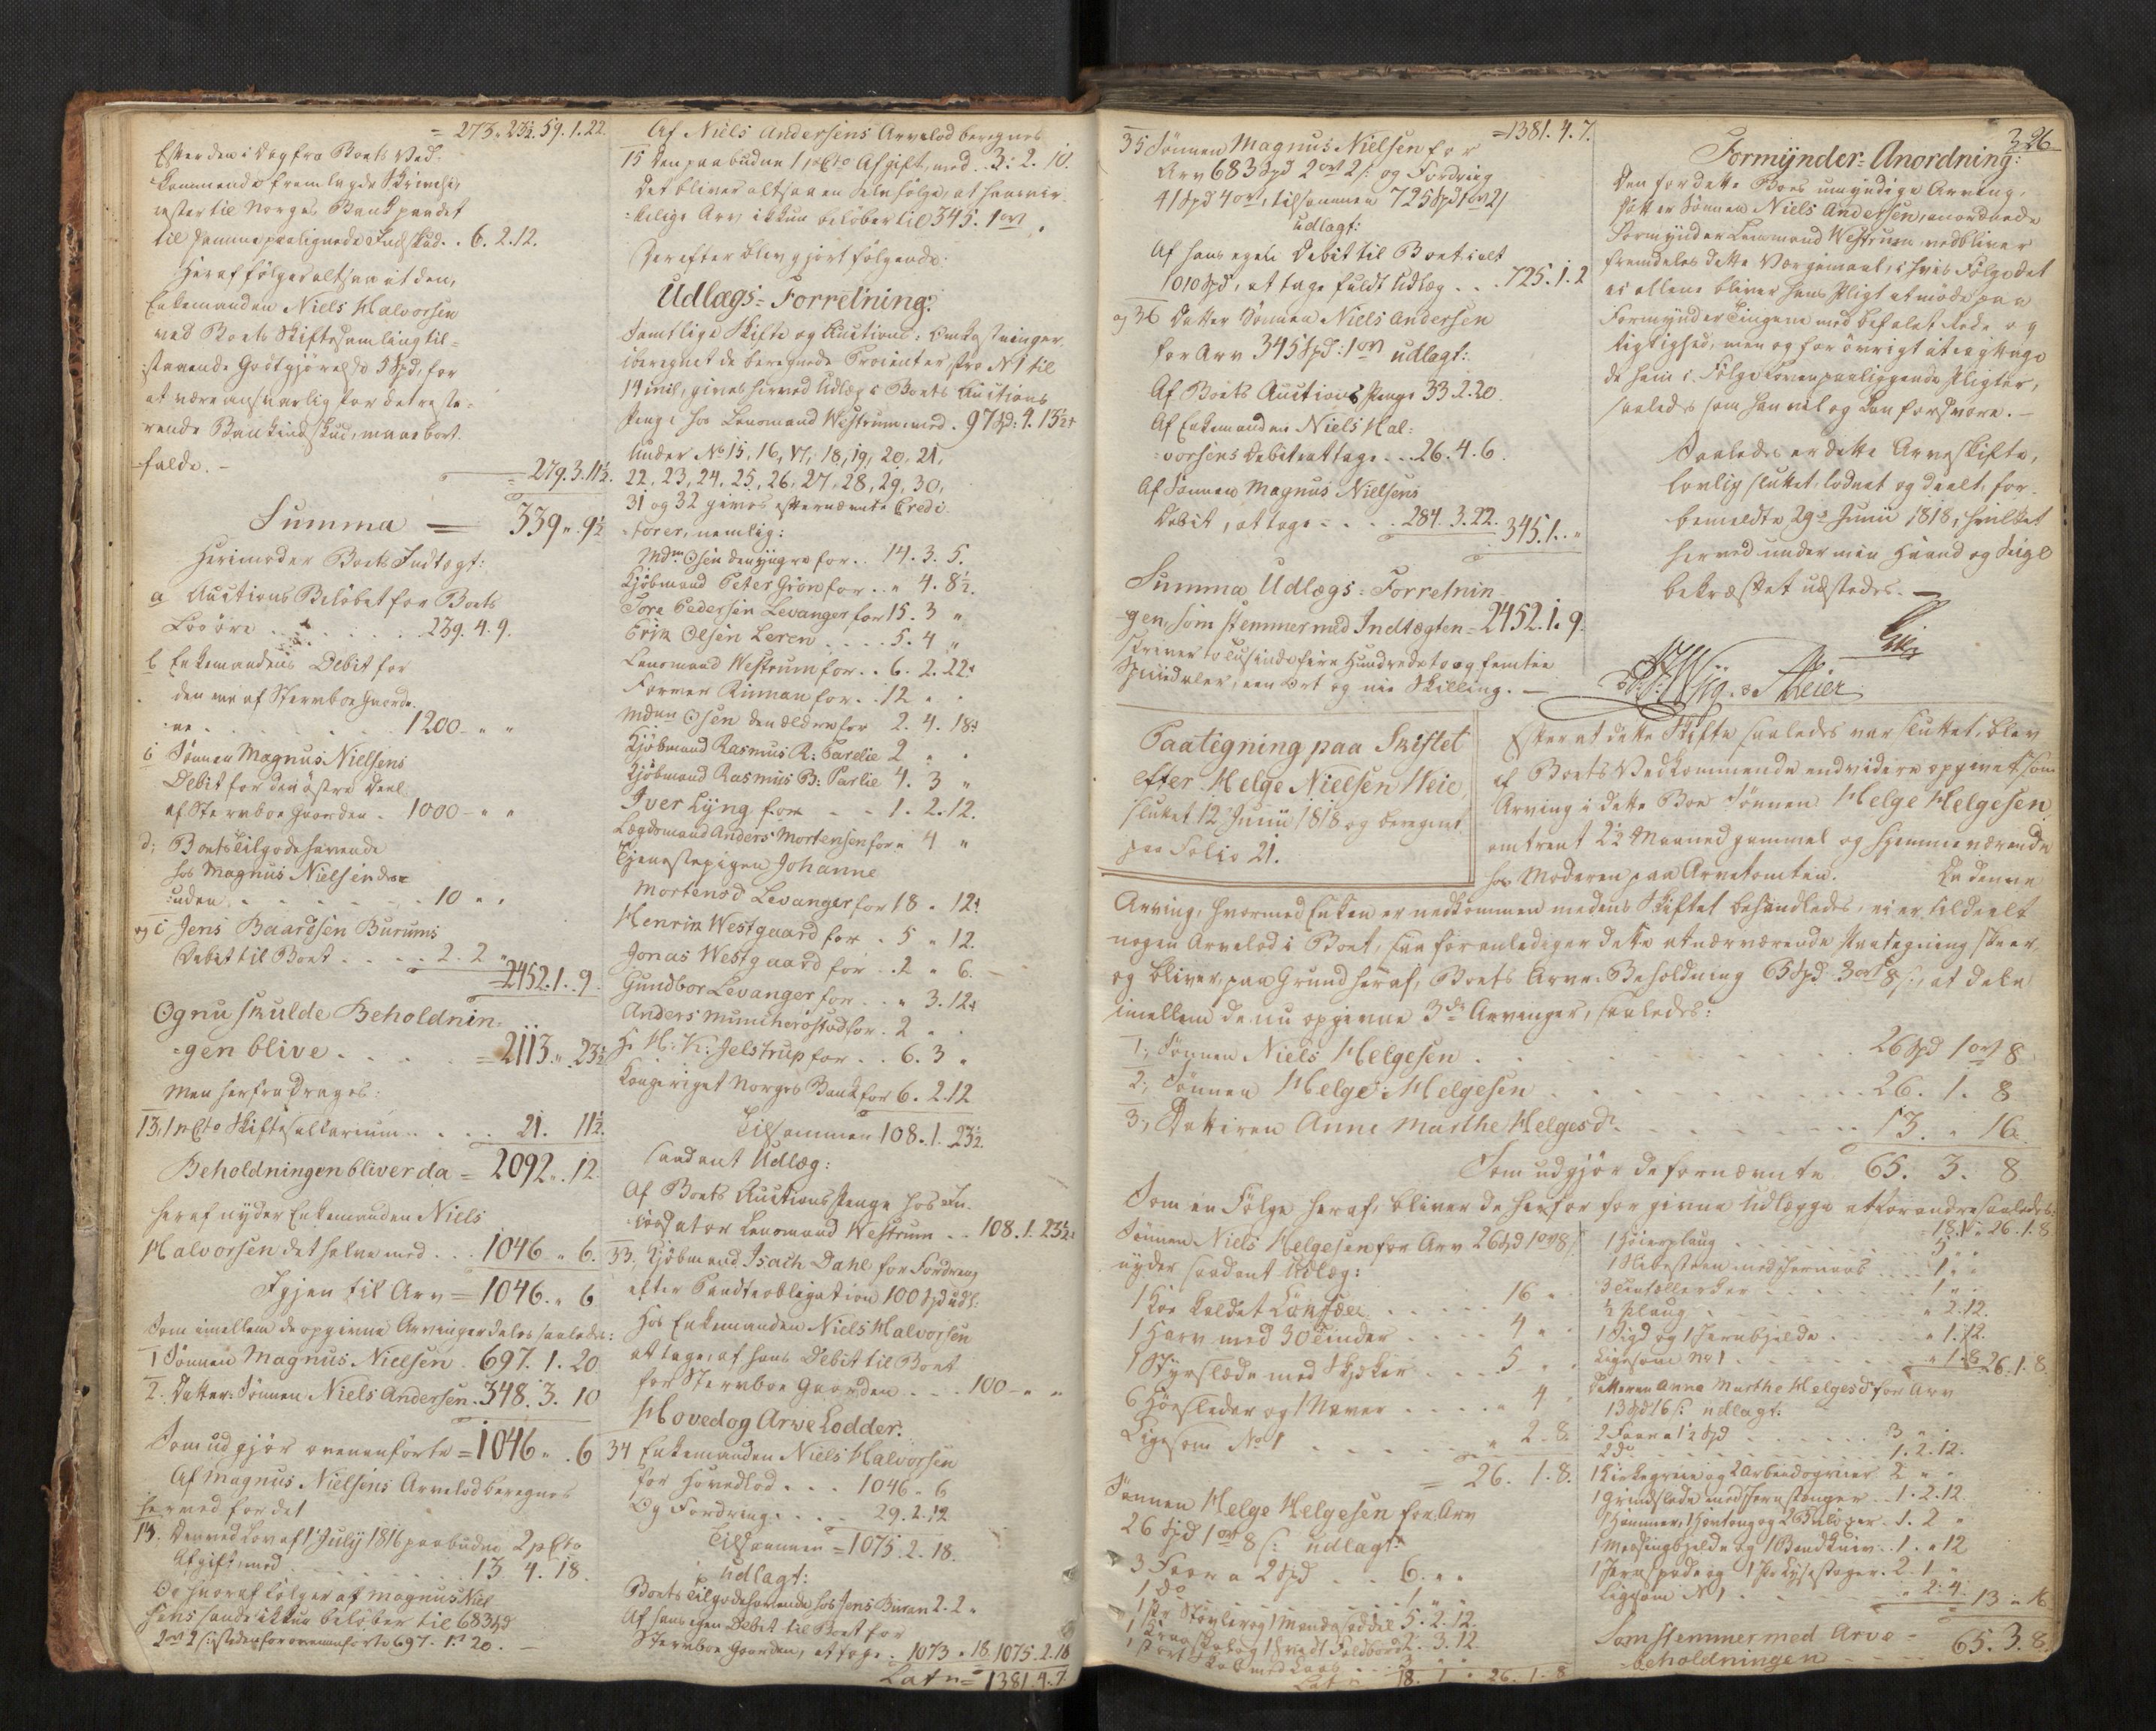 = 273 „ 23½. 59. 1. 22.
Efter den i Dag fra Boets Ved-
kommende fremlagde Skrivelse,
rester til Norges Bank paa det
til samme paalignede Indskud . . 6. 2. 12.
Heraf følger altsaa at den,
Enkemanden Niels Halvorsen
ved Boets Skiftesamling til-
staaende Godtgjørelse 5 Spd, for
at være ansvarlig for det reste-
rende Bankindskud, maae bort-
falde. —
= 279. 3. 11½.
Summa = 339 „ 9½
Herimoder Boets Indtægt:
a Auctions Beløbet for Boets
Løsøre . . . . . . 239. 4. 9.
b Enkemandens Debit for
den ene af Stervboe Gaarde-
ne . . . . . . 1200 - „ „
c Sønnen Magnus Nielsens
Debit for den østre Deel
af Stervboe Gaarden . 1000 - „ „
d; Boets Tilgodehavende
hos Magnus Nielsen des-
uden . . . . . . 10 „ „
og e Jens Baardsen Burums
Debit til Boet . . . . 2. 2 „
= 2452. 1. 9.
Og nu skulde Beholdnin-
=gen blive . . . . = 2113. „ 23½
Men herfra drages:
13, 1 pCto Skiftesallarium . . . . 21. 11½.
Beholdningen bliver da = 2092 „ 12.
Heraf nyder Enkemanden Niels
Halvorsen det halve med . . . 1046 „ 6.
Igjen til Arv = 1046. „ 6
Som imellem de opgivne Arvinger deles saaledes:
1 Sønnen Magnus Nielsen . 697. 1. 20.
2. Datter-Sønnen Niels Andersen . 348. 3. 10
Som udgjør ovenanførte = 1046 „ . 6
Af Magnus Nielsens Arvelod beregnes
herved for det
14, Den ved Lov af 1 July 1816 paabudne 2 pCto
Afgift, med . . . . . . 13. 4. 18.
Og hvoraf følger at Magnus Niel-
sens sande ikkun beløber til 683 Spd
2 ort 2 s: istedenfor ovenanførte 697. 1. 20. —
Af Niels Andersens Arvelod beregnes
15 Den paabudne 1 pCto Afgift, med . . 3. 2. 10.
Det bliver altsaa en Selvfølge, at hans vir-
kelige Arv ikkun beløber til 345. 1 ort.
Herefter blev gjort følgende:
Udlægs-Forretning:
Samtlige Skifte og Auctions-Omkostninger,
iberegnet de beregnede Procenter fra No 1 til
14 incl, gives herved Udlæg i Boets Auctions
Penge hos Lensmand Westrum med . 97 Spd: 4. 15½
Under No 15, 16, 17, 18, 19, 20, 21,
22, 23, 24, 25, 26, 27, 28, 29, 30,
31 og 32 gives efternævnte Credi-
torer, nemlig:
Mdm Osen den yngre for . . 14. 3. 5.
Kjøbmand Peter Grøn for . . „ 4. 8½.
Tore Pedersen Levanger for 15. 3 „
Erik Olsen Leren . . . . 5. 4 „
Lensmand Westrum for . . 6. 2. 22
Farver Rinnan for . . 12 „ „
Mdm Osen den ældre for 2. 4. 18
Kjøbmand Rasmus R: Parelie 2 „ „
Kjøbmand Rasmus B: Parlie 4. 3 „
Iver Lyng for . . 1. 2. 12.
Lægdsmand Anders Mortensen for „ 4 „
Tjenestepigen Johanne
Mortensd Levanger for 18 „ 12
Henrik Westgaard for . 5 „ 12.
Jonas Westgaard for . . 2 „ 6.
Gundbor Levanger for . . „ 3. 12
Anders Munkerøstad for . 2 „ „
Hr H: K: Jelstrup for . . 6. 3 „
Kongeriget Norges Bank for 6. 2. 12
Tilsammen 108. 1. 23½.
saadant Udlæg:
Af Boets Auctions Penge hos In-
cassator Lensmand Westrum . . 108. 1. 23½
33, Kjøbmand Isach Dahl for Fordring
efter Pandteobligation 100 Spd udl:
Hos Enkemanden Niels Halvorsen
at tage, af hans Debit til Boet
for Stervboe Gaarden . . . 100 - „ „
Hoved og Arve Lodder.
34 Enkemanden Niels Halvorsen
for Hovedlod . . . 1046 „ 6
Og Fordring . . . . 29. 2. 12
Tilsammen = 1075. 2. 18.
udlagt:
Boets Tilgodehavende hos Jens Buran 2. 2 „
Af hans egen Debit til Boet for
Stervboe Gaarden, at tage . 1073 „ 18. 1075. 2. 18
Lat = 1381. 4. 7
326
= 1381. 4. 7.
35 Sønnen Magnus Nielsen for
Arv 683 Spd 2 ort 2 s: og Fordring
41 Spd 4 ort, tilsammen 725 Spd 1 ort 2 s
udlagt:
Af hans egen Debit til Boet ialt
1010 Spd, at tage fuldt Udlæg . . . 725. 1. 2
og 36 Datter Sønnen Niels Andersen
for Arv 345 Spd: 1 ort udlagt:
Af Boets Auctions Penge 33. 2. 20.
Af Enkemanden Niels Hal-
vorsens Debit at tage . . 26. 4. 6.
Af Sønnen Magnus Nielsens
Debit, at tage . . . . 284. 3. 22.
345. 1. „
Summa Udlægs-Forretnin-
gen, som stemmer med Indtægten = 2452. 1. 9.
skriver to tusinde fire Hundrede to og femtie
Speciedaler, een Ort og nie Skilling. —
Formynder-Anordning:
Den for dette Boes umyndige Arving,
Datter Sønnen Niels Andersen, anordnede
Formynder Lensmand Westrum vedbliver
fremdeles dette Værgemaal, i hvis Følge det
ei allene bliver hans Pligt at møde paa
Formynder Tingene med befalet Rede og
Rigtighed, men og for øvrigt at iagttage
de ham i Følge Loven paaliggende Pligter,
saaledes som han vel og kan forsvare. —
Saaledes er dette Arveskifte,
lovlig sluttet, loddet og deelt, for-
bemeldte 29de Junii 1818, hvilket
herved under min Haand og Seigl
bekræftet udstedes. —
Paategning paa Skiftet
efter Helge Nielsen Heie,
sluttet 12 Junii 1818 og beregnet
paa Folio 21.
Efter at dette Skifte saaledes var sluttet, blev
af Boets Vedkommende endvidere opgivet som
Arving i dette Boe Sønnen Helge Helgesen
omtrent 2½ Maaned gammel og hjemmeværende
hos Moderen paa Arvetomten. Da denne
Arving, hvormed Enken er nedkommen medens Skiftet behandledes, ei er tildeelt
nogen Arvelod i Boet, saa foranlediger dette at nærværende Paategning skeer,
og bliver, paa Grund heraf, Boets Arve-Beholdning 65 Spd 3 ort 8 s:, at dele
imellem de nu opgivne 3de Arvinger, saaledes:
1, Sønnen Niels Helgesen . . . . . . 26 Spd 1 ort 8
2, Sønnen Helge Helgesen . . . . . . 26. 1. 8
3, Datteren Anne Marthe Helgesdr . . . . . . 13. „ 16.
Som udgjør de fornævnte 65. 3. 8
Som en Følge heraf, bliver de herfor forgivne Udlægge at forandre saaledes:
Sønnen Niels Helgesen for Arv 26 Spd 1 ort 8 s
nyder saadant Udlæg:
1 Koe kaldet Lønfæll . . . . . 16 „ „
1 Harv med 30 Tinder . . . . 4 „ „
1 Kyrslæde med Skjeker . . . . 5 „ „
6 Høesleder og 1 Naver . . . . . „ 4 „
Ligesom No 1 . . . . . . „ 2. 8.
= 26. 1. 8.
Sønnen Helge Helgesen for Arv
26 Spd 1 ort 8 s: udlagt:
3 Faar a 2 Spd . . . 6. „ „
1 do . . . . . . 1 „ „
1 Pr Støvler og 1 Mandssaddel 5. 2. 12.
2. 3. 12
Lat 18. 1 „ 26. 1. 8
18. 1 „ 26. 1. 8
1 Høierplaug . . . . . 5 „ „
1 Slibesteen med Jernaas . . . 1 „ „
3 Tintallerker . . . . . 1 „ „
½ Plaug . . . . . . „ 2. 12.
1 Sigd og 1 Jernbjelde . . . . . „ 1. 12.
Ligesom No 1 . . . . . . „ 1. 8 26. 1. 8.
Datteren Anna Marthe Helgesd for Arv
13 Spd 16 s: udlagt:
2 Faar a 1½ Spd . . . . . . 3 „ „
2 do . . . . . . 1. 2. 12.
1 Kirkegreie og 2 Arbeidsgreier 2 „ „
1 Grindslede med Jernstænger . . 1. 2. 12.
1 Hammer, 1 Hovtang og 2 . 1. 2 „
1 Messingbjelde og 1 Baandkniv . . 1. „ 12
1 Jernspade og 1 Pr Lysestager . 2. 1 „
Ligesom No 1 . . . . . . „ 2. 4. 13 „ 16
Som stemmer med Arve-
beholdningen . . . 65. 3. 8.